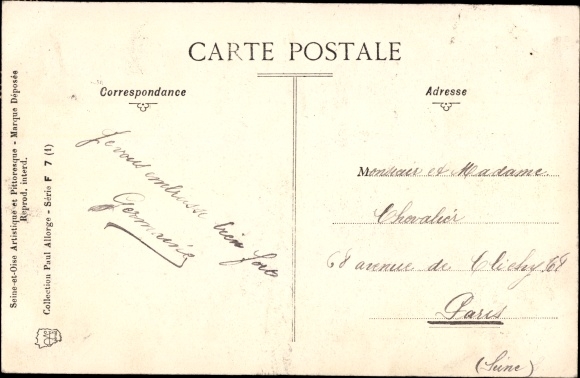 CARTE POSTALE
Correspondance
Adresse
Seine-et-Oise Artistique et Pittoresque - Marque Déposée
Reprod. interd.
Collection Paul Allorge - Série F 7 (1)
Je vous embrasse bien fort
Germaine
Monsieur et Madame
Chevalier
68 avenue de Clichy 68
Paris
(Seine)